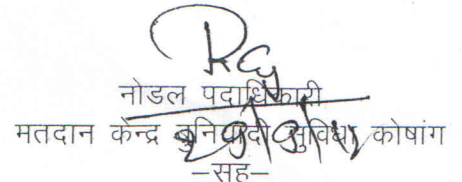 नोडल पदाधिकारी
मतदान केन्द्र बुनियादी सुविधा कोषांग
–सह–